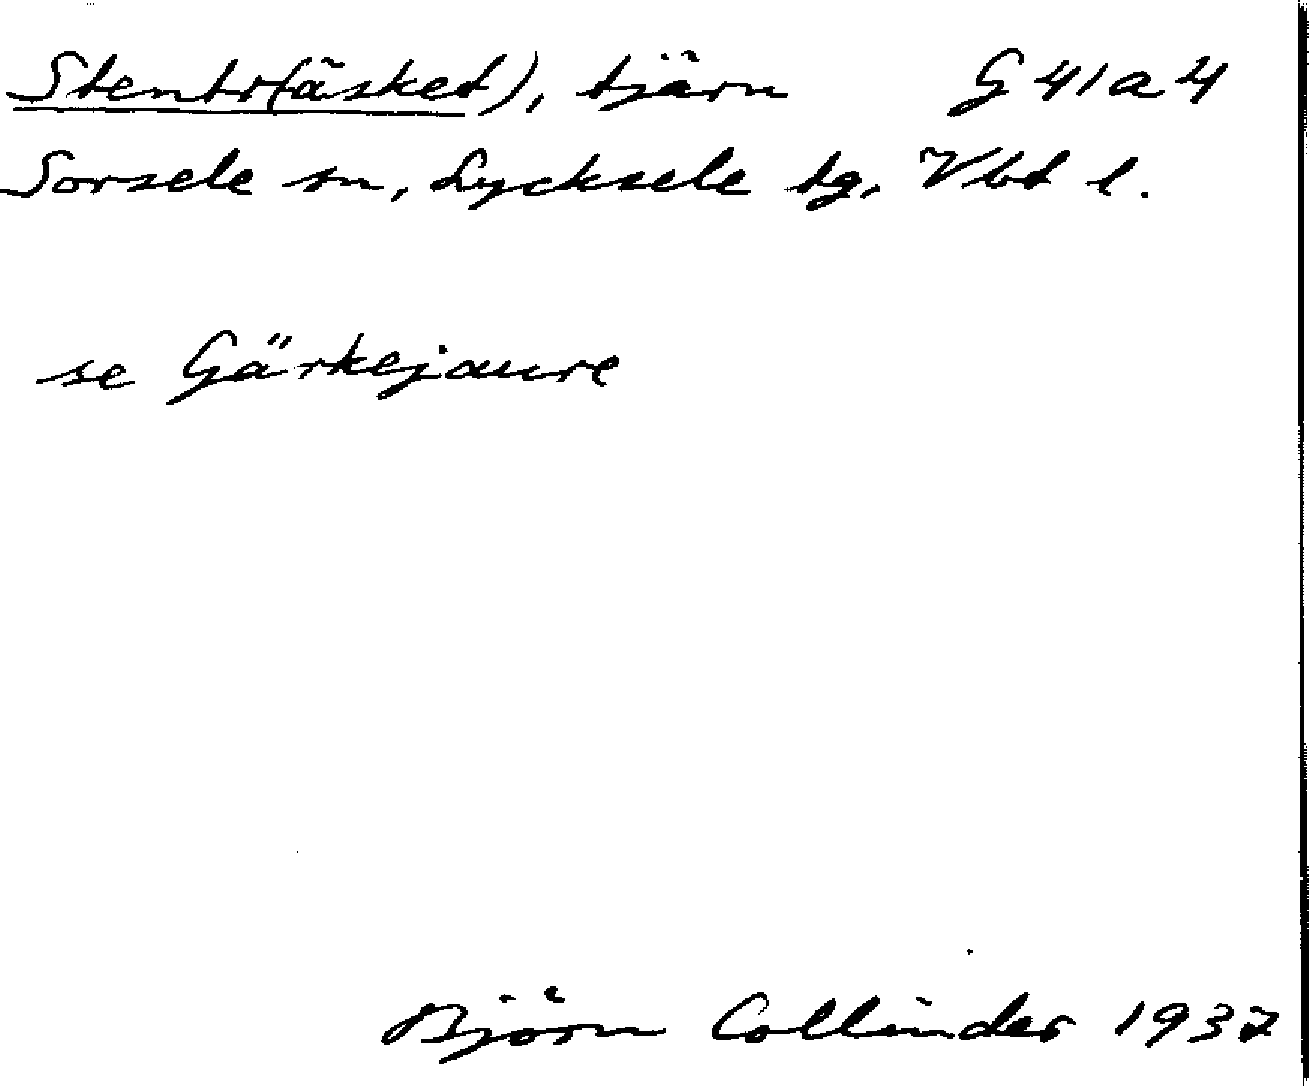 Stentr(äsket), tjärn G 41 a 4
Sorsele sn, Lycksele tg, Vbt l.
se Gärkejaure
Björn Collinder 1937